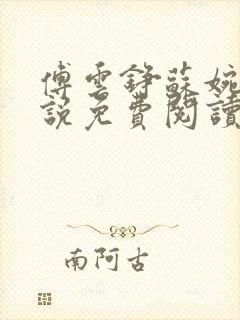 傅雲錚蘇婉
說免費閱讀
南阿古